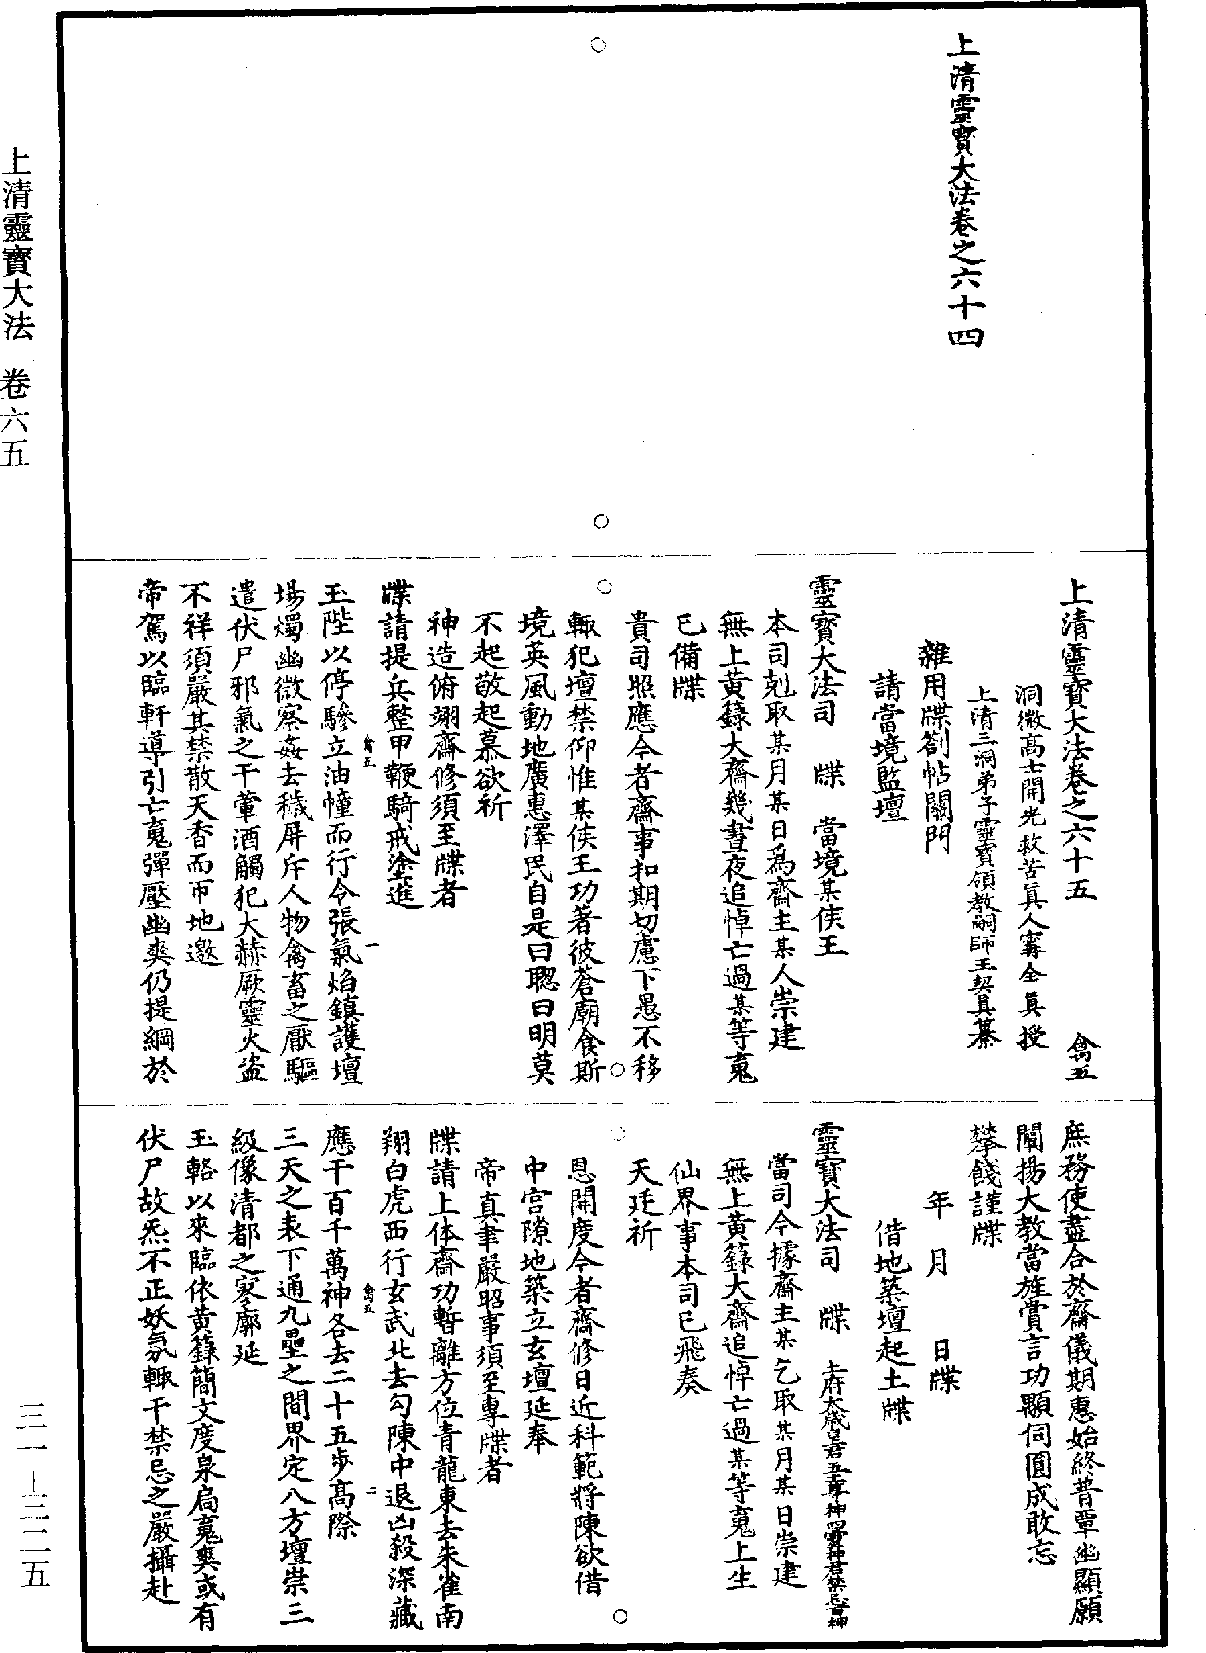 上清靈寶大法卷之六十四
上清靈寶大法卷之六十五　禽五
洞微高士開光救苦真人寗全真授
上清三洞弟子靈寶領教嗣師王契真纂
雜用牒劄帖關門
請當境監壇
靈寶大法司　牒　當境某侯王
本司剋取某月某日爲齋主某人崇建
無上黃籙大齋幾晝夜追悼亡過某等䰟
已備牒
貴司照應今者齋事扣期切慮下愚不移
輒犯壇禁仰惟某侯王功著彼蒼廟食斯
境英風動地廣惠澤民自是曰聦曰明莫
不起敬起慕欲祈
神造俯翊齋修須至牒者
牒請提兵整甲鞭騎戒塗進
玉陛以停驂立油幢而行令張氣焰鎮護壇
場燭幽微察姦去穢屏斥人物禽畜之厭驅
遣伏尸邪氣之干葷酒觸犯大赫厥靈火盜
不祥須嚴其禁散天香而帀地邀
帝駕以臨軒導引亡䰟彈壓幽爽仍提綱於
庶務使盡合於齋儀期惠始終普覃幽顯願
闡揚大教當旌賞言功顯伺圓成敢忘
攀餞謹牒
年　月　日牒
借地築壇起土牒
靈寶大法司　牒　上府太歲尊君五章神
當司今據齋主某乞取某月某日崇建
無上黃籙大齋追悼亡過某等䰟上生
仙界事本司已飛奏
天廷祈
恩開度今者齋修日近科範將陳欲借
中宮隙地築立玄壇延奉
帝真聿嚴昭事須至專牒者
牒請上体齋功暫離方位青龍東去朱雀南
翔白虎西行玄武北去勾陳中退凶殺深藏
應干百千萬神各去二十五步高際
三天之表下通九壘之間界定八方壇崇三
級像清都之寥廓延
玉輅以來臨依黃籙簡文度泉扃䰟爽或有
伏尸故炁不正妖氛輒干禁忌之嚴攝赴
禽五　一
禽五　二
上清靈寶大法　卷六五
三一—三二五